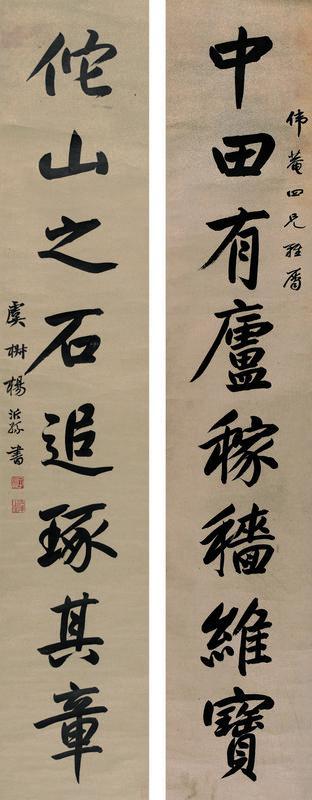 中田有廬稼穡維寶
伟菴四兄雅屬
佗山之石追琢其章
虞楊沂孫書